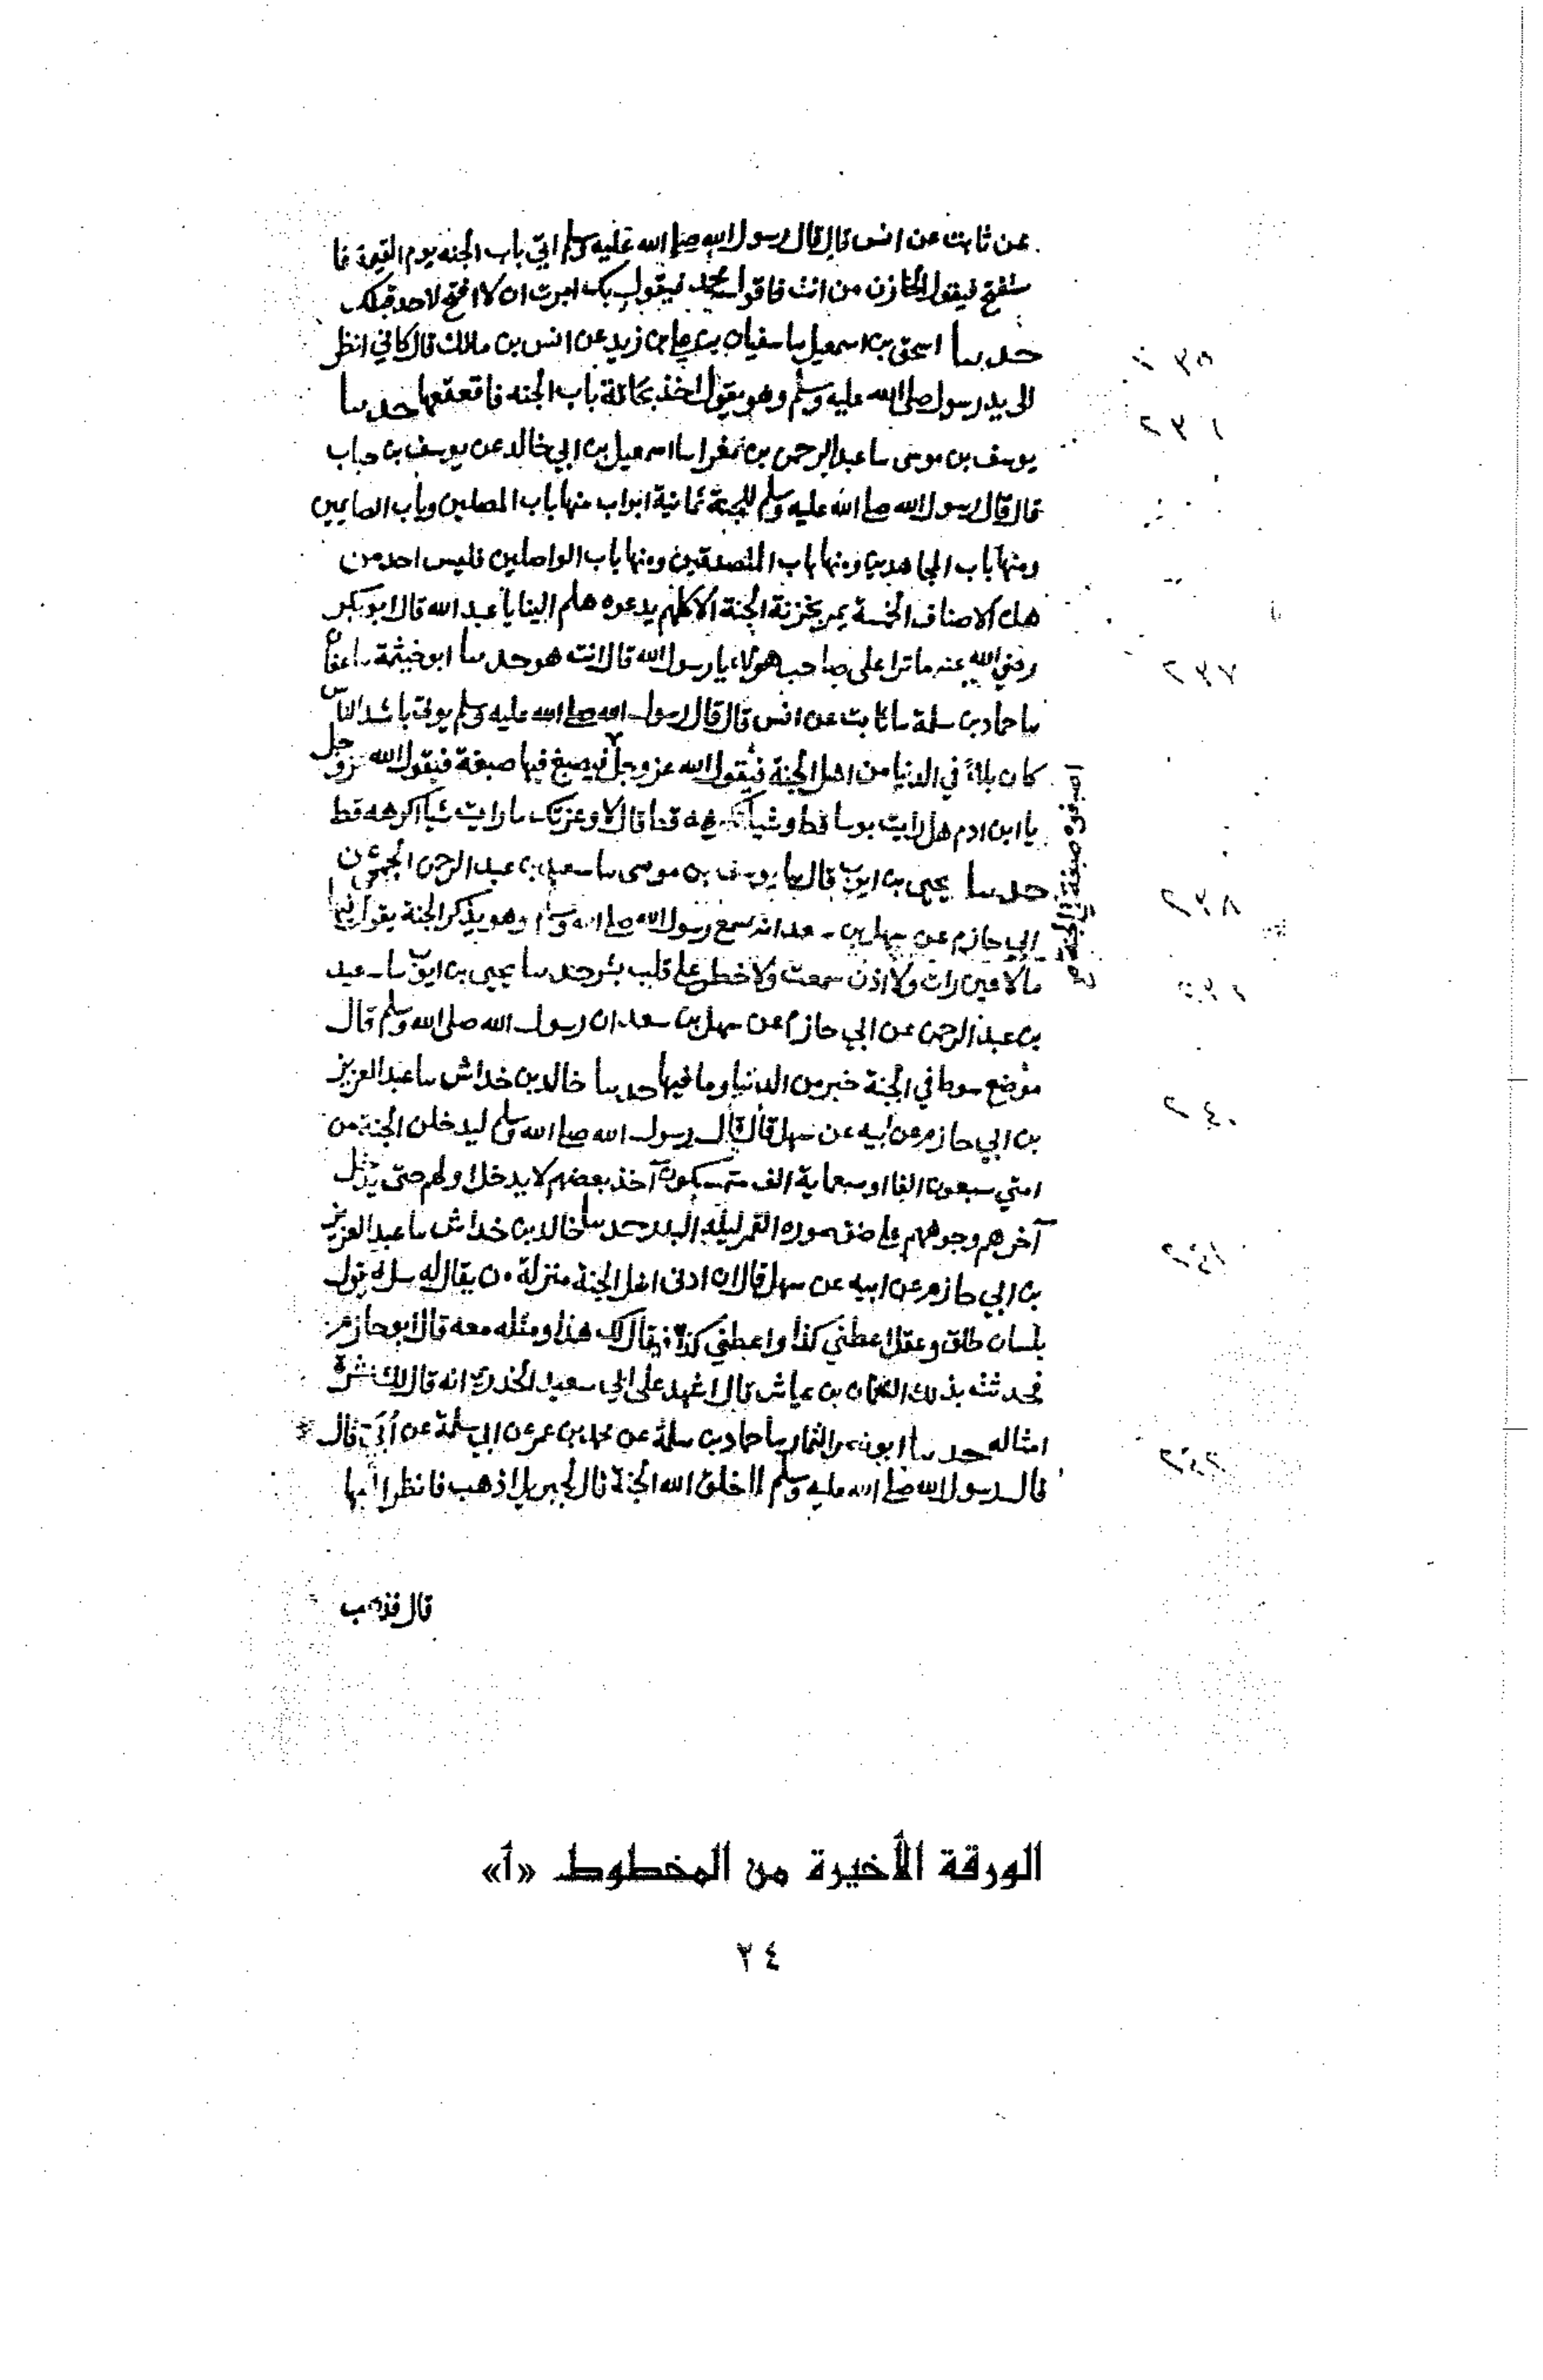 عن ثابت عن انس قال قال رسول الله صلى الله عليه وسلم اتي باب الجنه يوم القيمة فا
ستفتح فيقول الخازن من انت فاقول محمد فيقول بك امرت ان لا افتح لاحد قبلك
حدثنا اسحق بن اسمعيل نا سفيان عن علي بن زيد عن انس بن مالك قال كاني انظر
٢٣٥
الى يد رسول صلى الله عليه وسلم وهو يقول اخذ بحلقة باب الجنه فاقعقعها حدثنا
٢٣٦
يوسف بن موسى نا عبد الرحمن بن مغرا نا اسمعيل بن ابي خالد عن يوسف بن حباب
قال قال رسول الله صلى الله عليه وسلم للجنة ثمانية ابواب منها باب المصلين وباب الصايمين
ومنها باب المجاهدين ومنها باب المتصدقين ومنها باب الواصلين فليس احد من
هذه الاصناف الخمسة يمر بخزنة الجنة الا كلهم يدعوه هلم الينا يا عبد الله قال ابو بكر
رضي الله عنه ما ترا على صاحب هولاء يا رسول الله قال انت هو حدثنا ابو خيثمة نا عفان
٢٣٧
نا حماد بن سلمة نا ثابت عن انس قال قال رسول الله صلى الله عليه وسلم يوتى باشد الناس
كان بلاءً في الدنيا من اهل الجنة فيقول الله عز وجل فيصبغ فيها صبغة فيقول الله عز وجل
اصبغوه صبغة في الجنة صح
يا ابن ادم هل رايت بوسا قط وشيا تكرهه قط قال لا وعزتك ما رايت شيا اكرهه قط
حدثنا يحيى بن ايوب قال نا يوسف بن موسى نا سعيد بن عبد الرحمن الجمحي عن
٢٣٨
ابي حازم عن سهل بن سعد انه سمع رسول الله صلى الله وسلم وهو يذكر الجنة يقول فيها
ما لا عين رات ولا اذن سمعت ولا خطر على قلب بشر حدثنا يحيى بن ايوب نا سعيد
٢٣٩
بن عبد الرحمن عن ابي حازم عن سهل بن سعد ان رسول الله صلى الله وسلم قال
موضع سوط في الجنة خير من الدنيا وما فيها حدثنا خالد بن خداش نا عبد العزيز
٢٤٠
بن ابي حازم عن ابيه عن سهل قال قال رسول الله صلى الله وسلم ليدخلن الجنة من
امتي سبعون الفا او سبعماية الف متمسكون آخذ بعضهم لا يدخل اولهم حتى يدخل
آخرهم وجوههم على ضو صوره القمر ليلة البدر حدثنا خالد بن خداش نا عبد العزيز
٢٤١
بن ابي حازم عن ابيه عن سهل قال ان ادنى اهل الجنة منزلة من يقال له سل فيقول
بلسان طلق وعقل اعطني كذا واعطني كذا فيقال لك هذا ومثله معه قال ابو حازم
فحدثته بذلك النعمان بن عياش قال اشهد على ابي سعيد الخدري انه قال لك عشرة
امثاله حدثنا ابو نصر التمار نا حماد بن سلمة عن محمد بن عمرو عن ابي سلمة عن ابي قال
٢٤٢
قال رسول الله صلى الله عليه وسلم لما خلق الله الجنة قال لجبريل اذهب فانظر اليها
قال فذهب
الورقة الأخيرة من المخطوط «أ»
٢٤